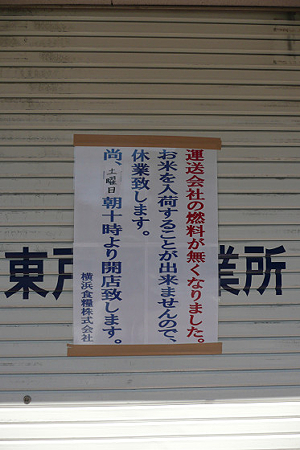 運送会社の燃料が無くなりました。
お米を入荷することが出来ませんので、
休業致します。
尚、土曜日朝十時より開店致します。
横浜食糧株式会社
東戸 業所